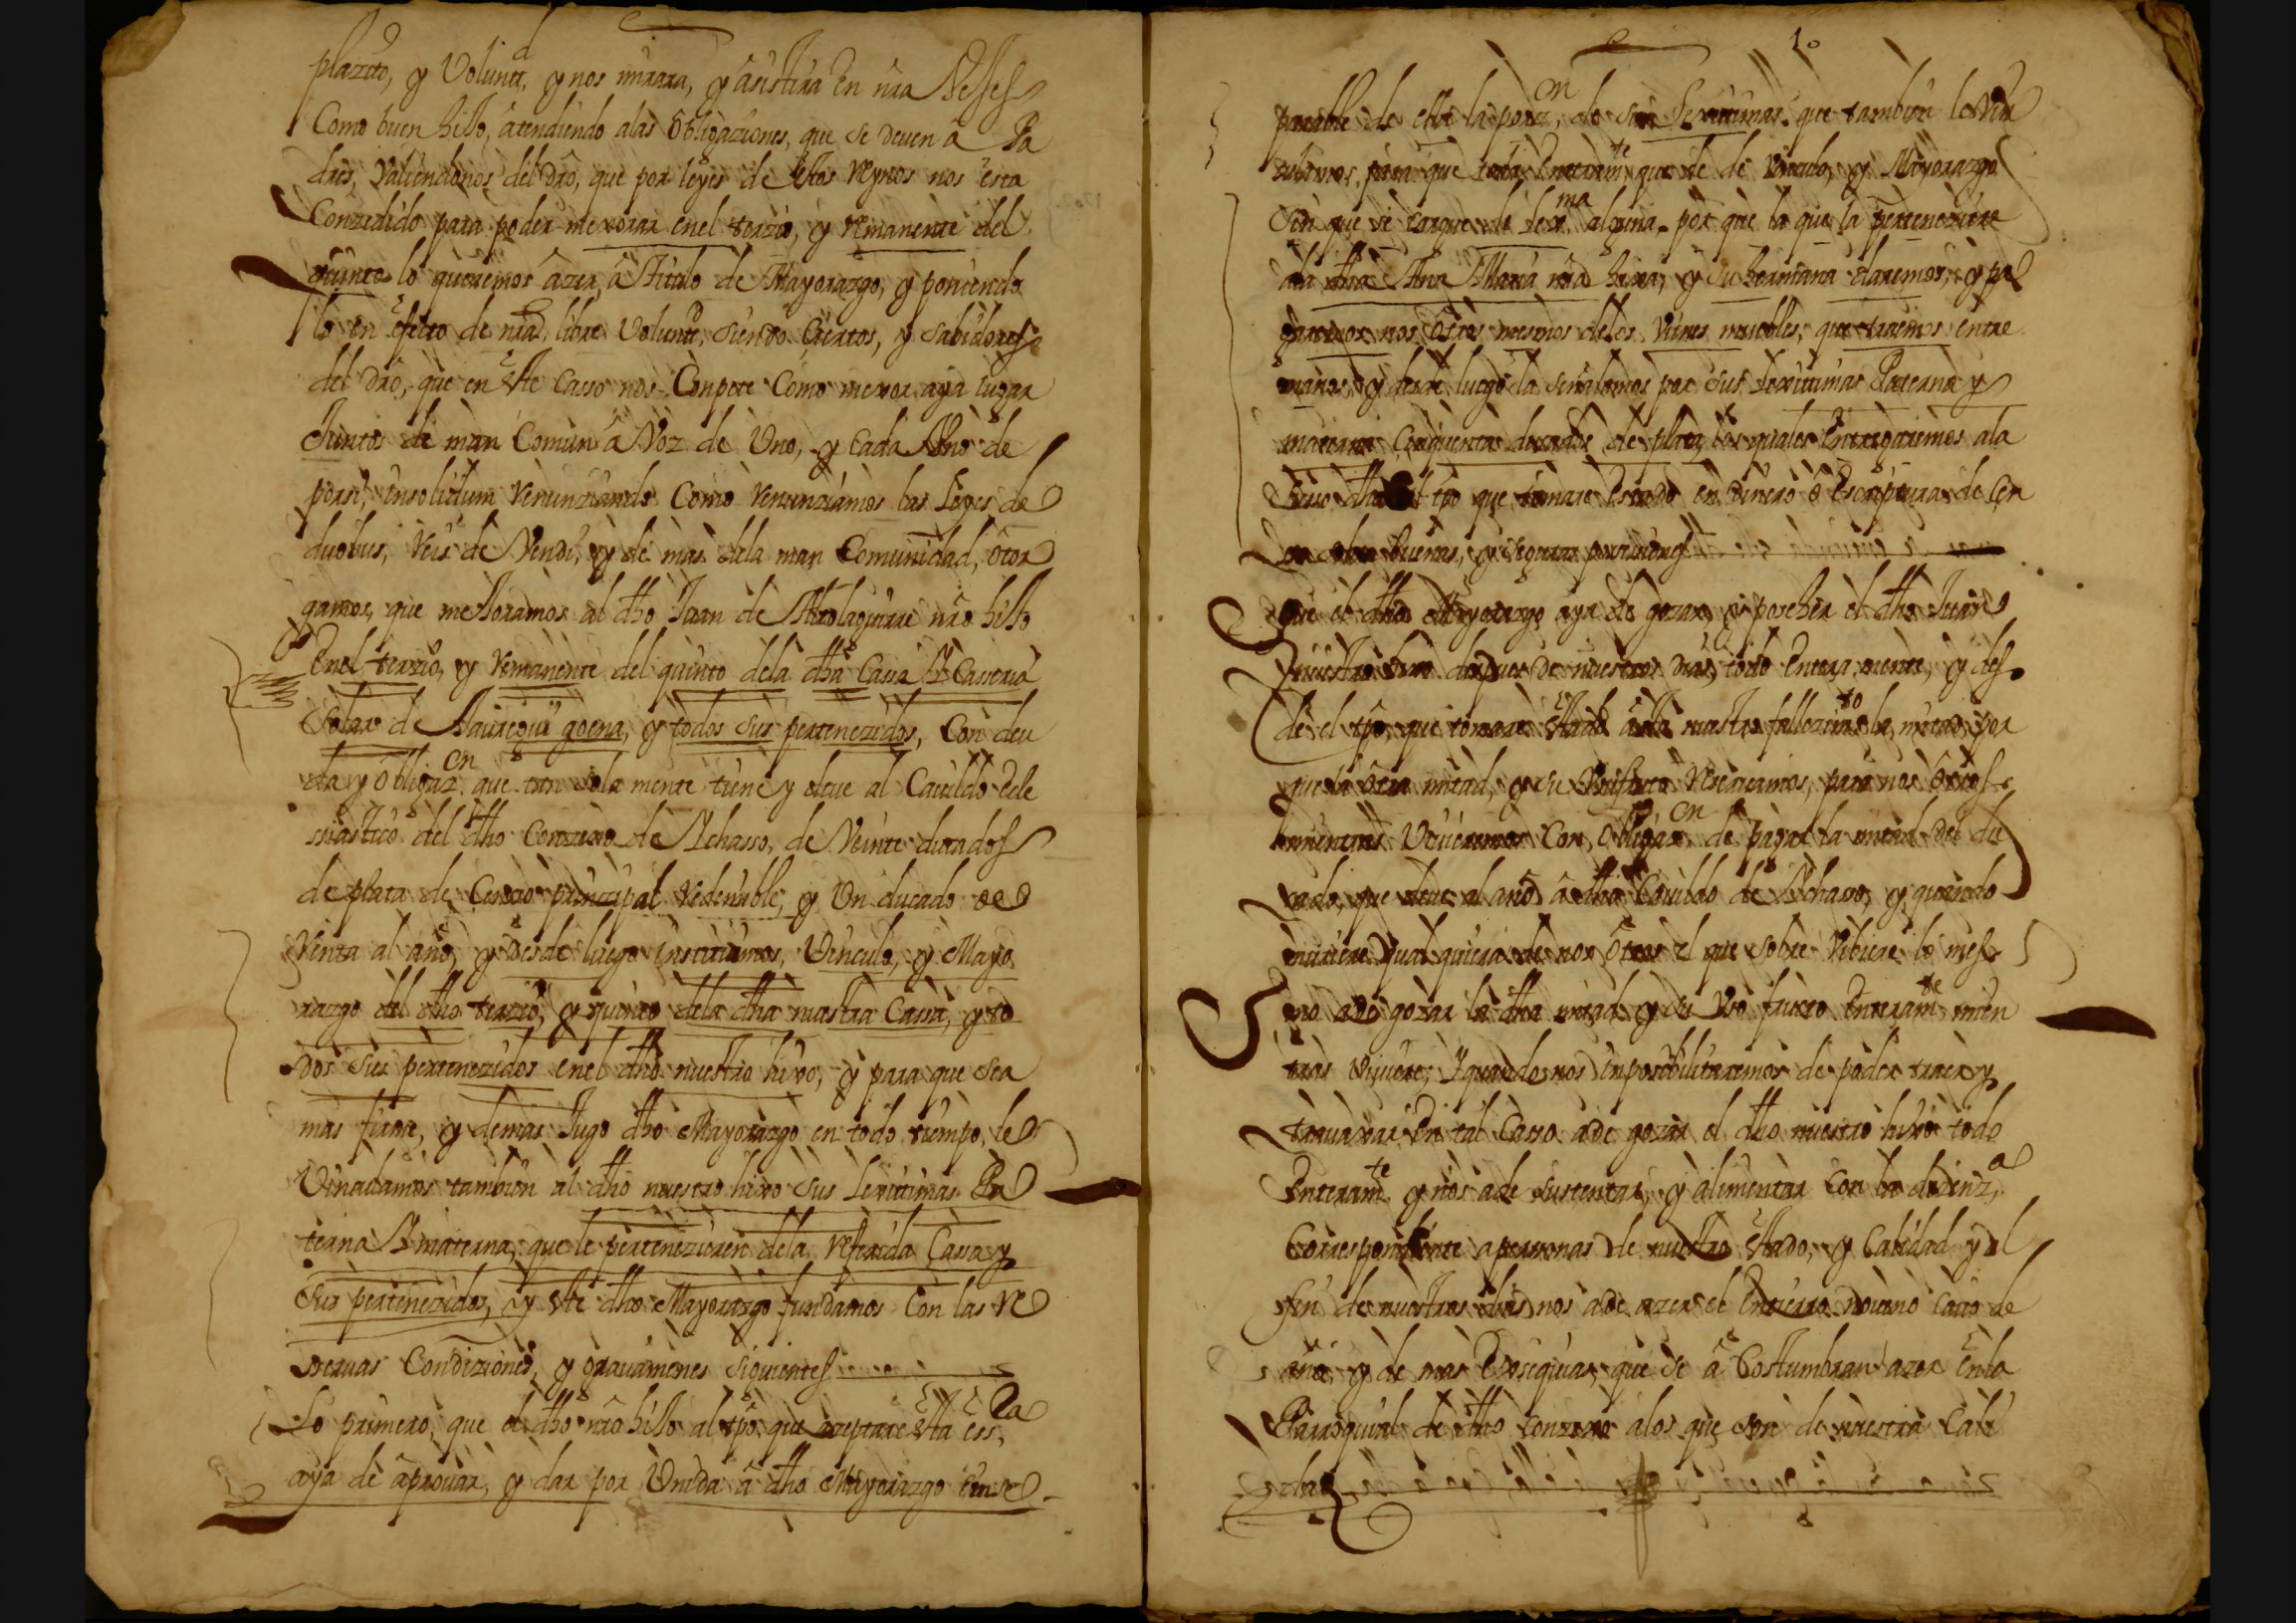 plazito, y Volunt.d y nos mirara, y asistira En nra Nesses
Como buen hiJo, atendiendo alas Obligaziones, que se deuen a Pa
dres, Valiendonos del Dro, que por leyes de estos Reynos nos esta
Conzedido para poder mexorar enel terzio, y Remanente del
quinto lo queremos azer, a titulo de Mayorazgo, y poniendo
lo en efecto de nra libre Volunt.d siendo Ciertos, y sabidores
del Dro, que en este Casso nos Conpete Como mexor aya lugar
Juntos de man Comun a Voz de Uno, y Cada Uno de
porsi, insolidum Renunziando Como Renunziamos las Leyes de
duobus, Reis de Vendi, y de mas dela man Comunidad, otor
gamos, que meJoramos al dho Juan de nro hiJo
Enel terzio, y Remanente del quinto dela dha Cassa y Casseria
Solar de Jauregui goena, y todos sus pertenezidos, Con deu
da y Obligaz.on que tan sola mente tiene y deue al Cauildo Ecle
siastico del dho Conzexo de Ichasso, de Veinte ducados
de plata de Zensso prinzipal Redemible, y Un ducado de
Renta al año, y desde luego instituimos, Vinculo, y Mayo
razgo del dho terzio, y quinto dela dha nuestra Cassa, y to
dos sus pertenezidos enel dho nuestro hixo, y para que sea
mas firme, y demas Jugo dho Mayorazgo en todo tiempo, le
Vinculamos tambien al dho nuestro hixo sus Lexitimas Pa
terna y materna, que le pertenezieren dela Referida Cassa y
sus pertenezidos, y este dho Mayorazgo fundamos Con las Re
seruas Condiziones, y grauamenes siguientes
Lo primero, que el dho nro hiJo al tpo, que azeptare esta ess.ra
aya de aprouar, y dar por Unida a dho Mayorazgo
10
parable de ella la porz.on de sus Lexitimas que tambien le Vin
culamos, para que toda Enteram.te quede de Vinculo, y Mayorazgo
Sin que se cargue de lex.ma alguna, por que la que la perteneziere
ala dha Ana Maria nra hixa, y su hermana daremos, y pa
garemos nos otros mesmos delos Vienes muebles, que tenemos entre
manos, y desde luego la señalamos por sus Lexitimas Paterna y
materna Cinquenta ducados de plata, los quales Entregaremos ala
Suso dha al tpo que tomare Estado en dinero o Escriptura de Cen
sos buenas, y seguras
Que el dho Mayorazgo aya de gozar, y posseher el dho Juan
nuestro hixo despues de nuestros dias, todo Entera mente, y des
de el tpo, que tomare Estado asta nuestro fallezim.to la mitad, por
que la otra mitad, y su Vsufruto Reseruamos, para nos otros
mientras Viuieremos Con Obligaz.on de pagar la mitad del du
cado, que deue al año a dho Cauildo de Ichasso, y quando
muriere qual quiera de nos otros el que sobre Vibiere lo mes
mo ade gozar la dha mitad y su Vso fructo Enteram.te mien
tras Viuiere, Y quando nos inposibilitaremos de poder traer y
trauaxar En tal Casso ade gozar el dho nuestro hixo todo
Enteram.te y nos ade sustentar, y alimentar Con la dezenz.a
Correspondiente a personas de nuestro Estado, y Calidad y al
fin de nuestros dias nos ade azer el Entierro noueno Cauo de
año, y de mas Exsequias, que se a Costumbran azer Enla
Parroquial de dho Conzexo alos que son de nuestra Cali
dad